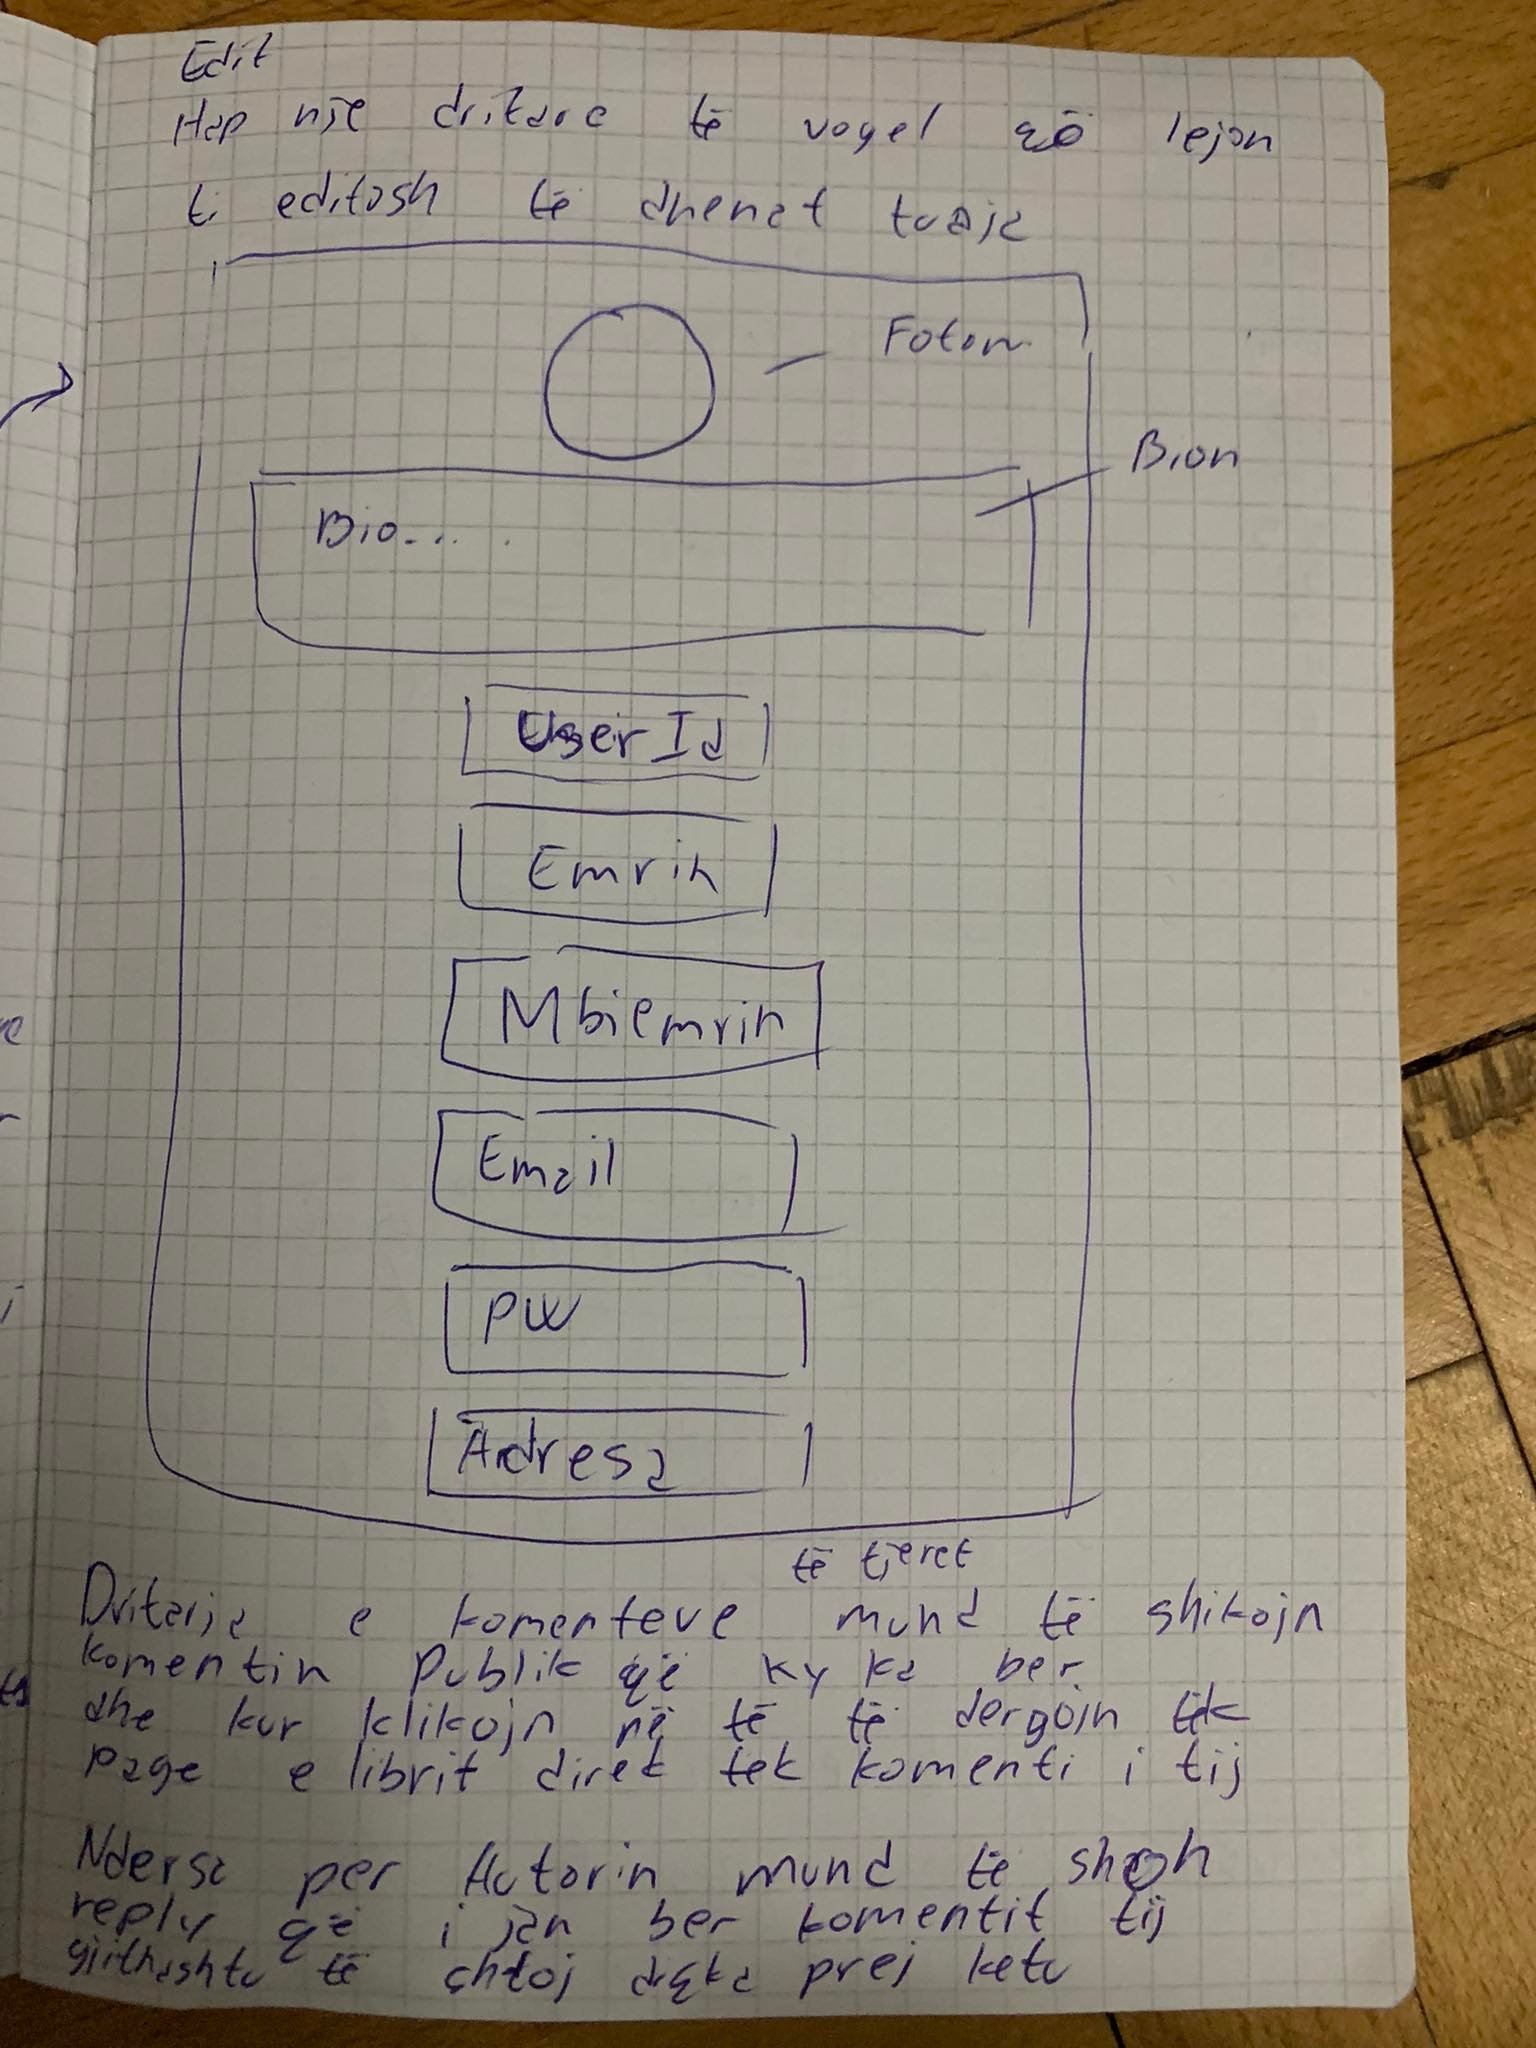 Edit
Hap nje dritare të vogel që lejon
ti editosh të dhenat tuaja
Foton
Bion
Bio....
User Id
Emrin
Mbiemrin
Email
PW
Adresa
të tjeret
Dritarja e komenteve mund të shikojn
komentin Publik që ky ka ber
dhe kur klikojn në të të dergojn tek
page e librit direk tek komenti i tij
Ndersa per Autorin mund të shoh
reply që i jan ber komentit tij
gjithashtu të shtoj prej ketu